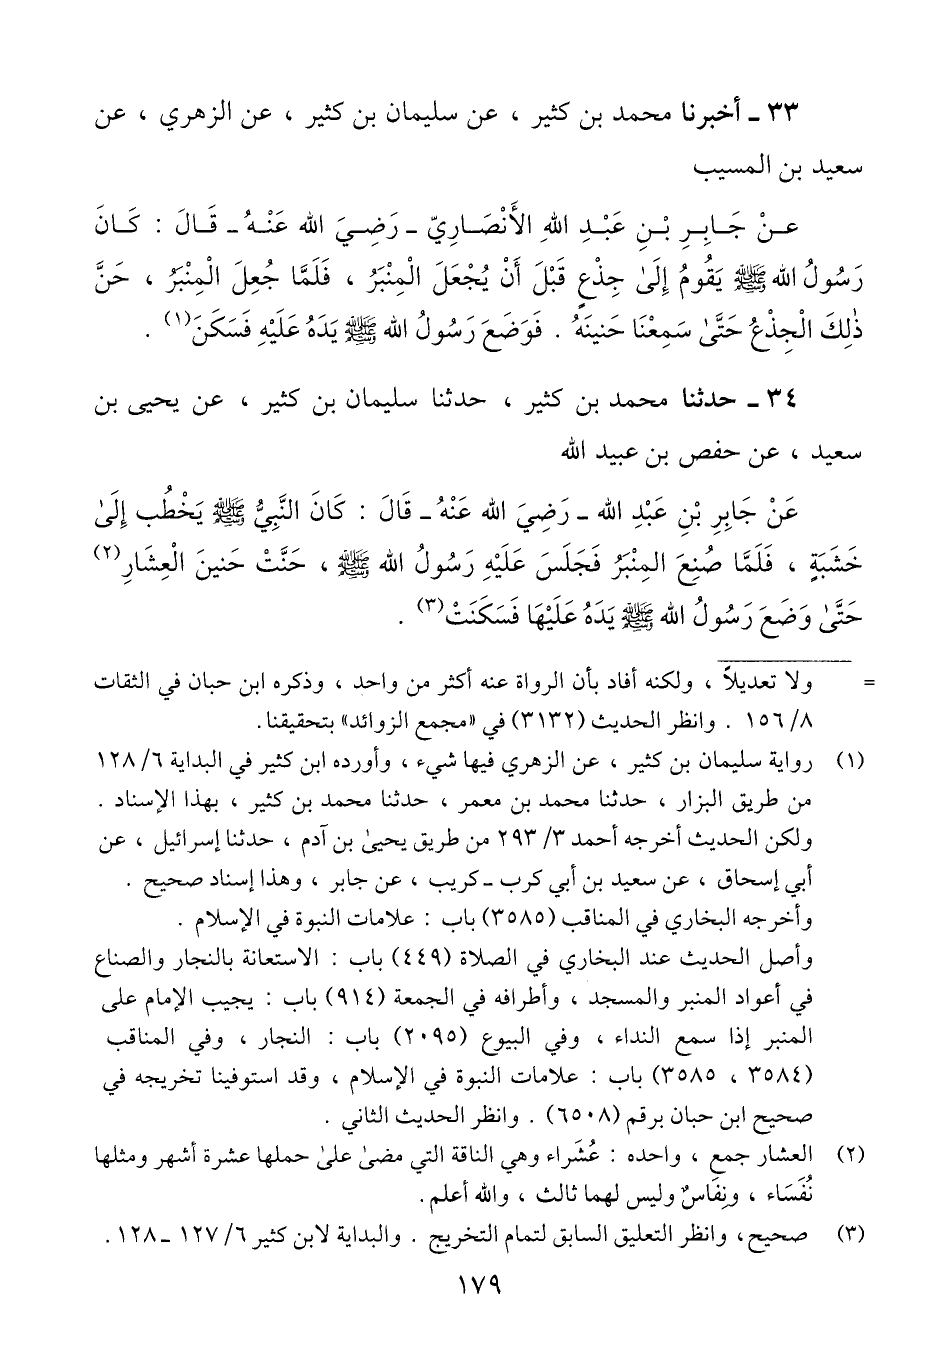 ٣٣ ـ أخبرنا محمد بن كثير ، عن سليمان بن كثير ، عن الزهري ، عن
سعيد بن المسيب
عـنْ جَـابِـرِ بْـنِ عَبْـدِ اللهِ الأَنْصَـارِيّ ـ رَضِـيَ الله عَنْـهُ ـ قَـالَ : كَـانَ
رَسُولُ الله ﷺ يَقُومُ إِلَىٰ جِذْعٍ قَبْلَ أَنْ يُجْعَلَ الْمِنْبَرُ ، فَلَمَّا جُعِلَ الْمِنْبَرُ ، حَنَّ
ذٰلِكَ الْجِذْعُ حَتَّىٰ سَمِعْنَا حَنينَهُ . فَوَضَعَ رَسُولُ الله ﷺ يَدَهُ عَلَيْهِ فَسَكَنَ(١) .
٣٤ ـ حدثنا محمد بن كثير ، حدثنا سليمان بن كثير ، عن يحيى بن
سعيد ، عن حفص بن عبيد الله
عَنْ جَابِرِ بْنِ عَبْدِ الله ـ رَضِيَ الله عَنْهُ ـ قَالَ : كَانَ النَّبِيُّ ﷺ يَخْطُب إِلَىٰ
خَشَبَةٍ ، فَلَمَّا صُنِعَ المِنْبَرُ فَجَلَسَ عَلَيْهِ رَسُولُ الله ﷺ ، حَنَّتْ حَنينَ الْعِشَارِ(٢)
حَتَّىٰ وَضَعَ رَسُولُ الله ﷺ يَدَهُ عَلَيْهَا فَسَكَنَتْ(٣) .
= ولا تعديلاً ، ولكنه أفاد بأن الرواة عنه أكثر من واحد ، وذكره ابن حبان في الثقات
٨/ ١٥٦ . وانظر الحديث (٣١٣٢) في «مجمع الزوائد» بتحقيقنا.
(١) رواية سليمان بن كثير ، عن الزهري فيها شيء ، وأورده ابن كثير في البداية ٦/ ١٢٨
من طريق البزار ، حدثنا محمد بن معمر ، حدثنا محمد بن كثير ، بهذا الإسناد .
ولكن الحديث أخرجه أحمد ٣/ ٢٩٣ من طريق يحيىٰ بن آدم ، حدثنا إسرائيل ، عن
أبي إسحاق ، عن سعيد بن أبي كرب ـ كريب ، عن جابر ، وهذا إسناد صحيح .
وأخرجه البخاري في المناقب (٣٥٨٥) باب : علامات النبوة في الإسلام .
وأصل الحديث عند البخاري في الصلاة (٤٤٩) باب : الاستعانة بالنجار والصناع
في أعواد المنبر والمسجد ، وأطرافه في الجمعة (٩١٤) باب : يجيب الإمام على
المنبر إذا سمع النداء ، وفي البيوع (٢٠٩٥) باب : النجار ، وفي المناقب
(٣٥٨٤ ، ٣٥٨٥) باب : علامات النبوة في الإسلام ، وقد استوفينا تخريجه في
صحيح ابن حبان برقم (٦٥٠٨) . وانظر الحديث الثاني .
(٢) العشار جمع ، واحده : عُشَراء وهي الناقة التي مضىٰ علىٰ حملها عشرة أشهر ومثلها
نُفَسَاء ، ونِفَاسٌ وليس لهما ثالث ، والله أعلم.
(٣) صحيح، وانظر التعليق السابق لتمام التخريج . والبداية لابن كثير ٦/ ١٢٧ ـ ١٢٨ .
١٧٩